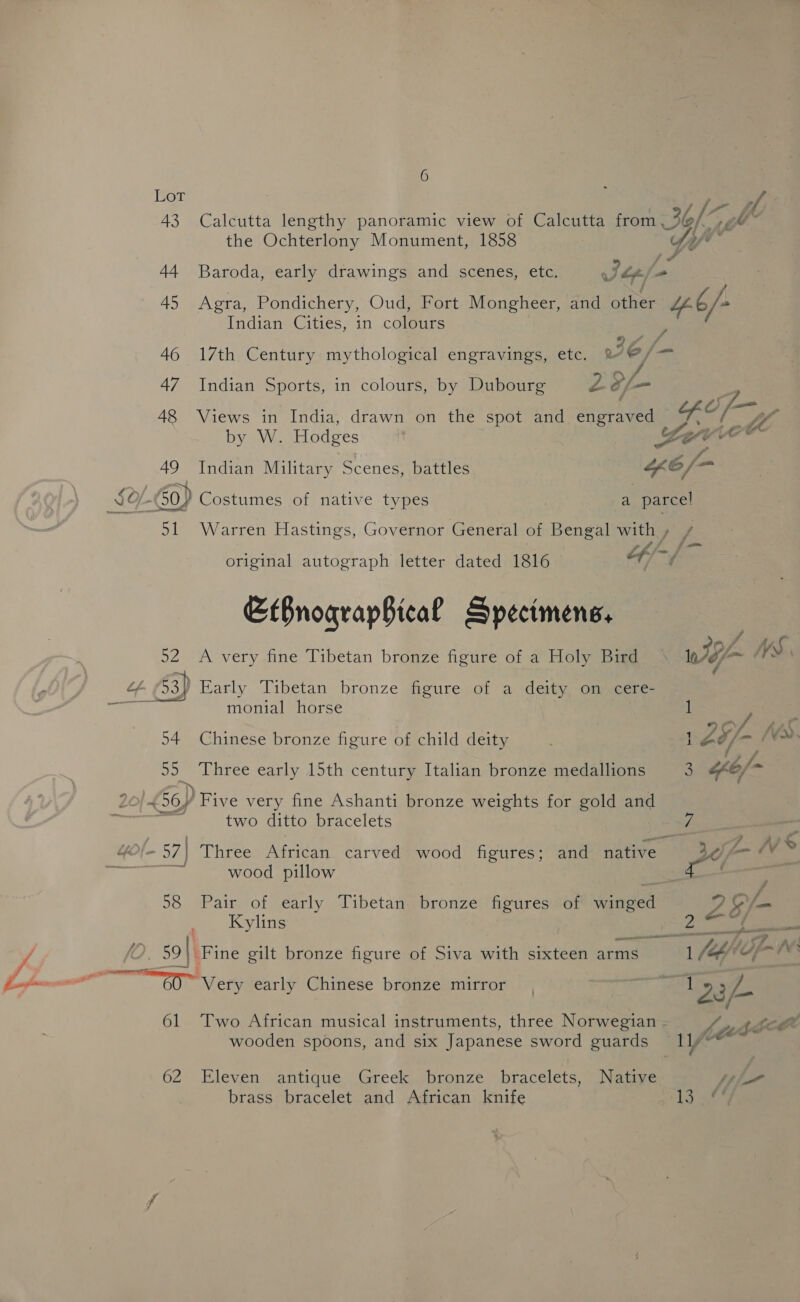 6
Lot
43 Calcutta lengthy panoramic view of Calcutta from 36/-
the Ochterlony Monument, 1858
44 Baroda, early drawings and scenes, etc.
45 Agra, Pondichery, Oud, Fort Mongheer, and other 46/-
Indian Cities, in colours
46 17th Century mythological engravings, etc. 36/-
47 Indian Sports, in colours, by Dubourg 28/-
48 Views in India, drawn on the spot and engraved 40/-
by W. Hodges
49 Indian Military Scenes, battles 46/-
50/- 50 Costumes of native types a parcel
51 Warren Hastings, Governor General of Bengal with
original autograph letter dated 1816 4/-/-
Ethnographical Specimens.
52 A very fine Tibetan bronze figure of a Holy Bird 1 38/- NS
4 53 Early Tibetan bronze figure of a deity on cere-
monial horse 1
54 Chinese bronze figure of child deity 1 28/- NS
55 Three early 15th century Italian bronze medallions 3 46/-
20/ 56 Five very fine Ashanti bronze weights for gold and
two ditto bracelets 7
40/- 57 Three African carved wood figures; and native 30/- NS
wood pillow 4
58 Pair of early Tibetan bronze figures of winged 28/-
Kylins 2
10. 59 Fine gilt bronze figure of Siva with sixteen arms 1
60 Very early Chinese bronze mirror 1 23/-
61 Two African musical instruments, three Norwegian
wooden spoons, and six Japanese sword guards 11
62 Eleven antique Greek bronze bracelets, Native
brass bracelet and African knife 13